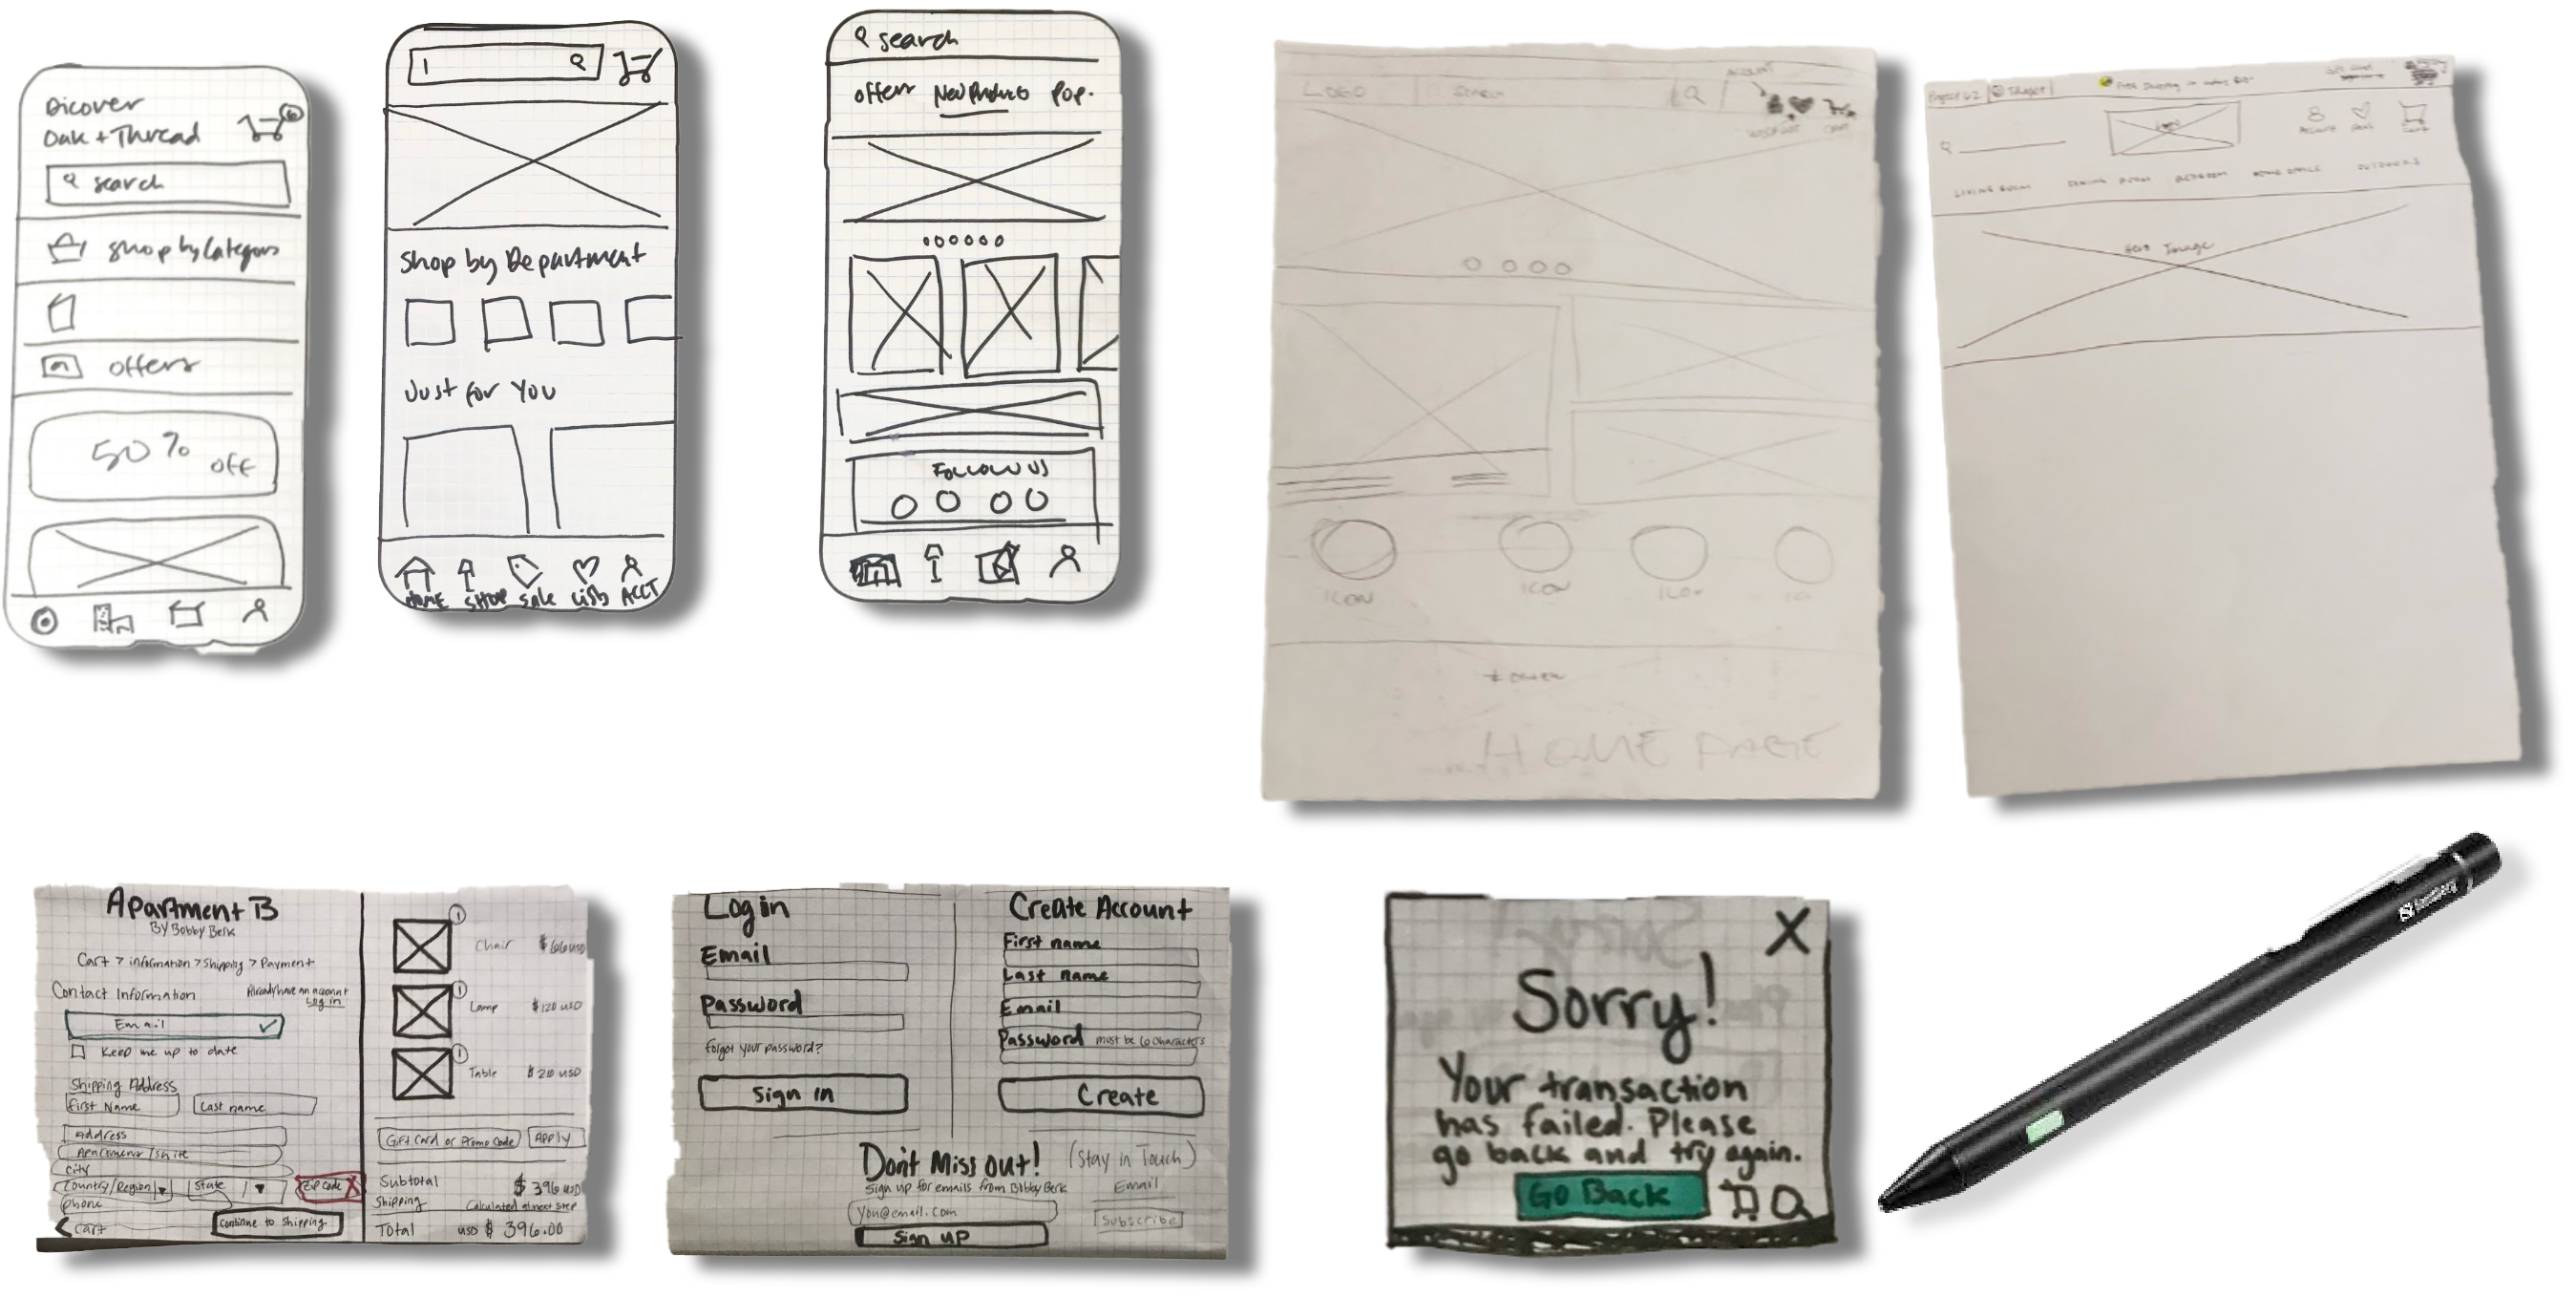 Dicover
Oak + Thread
search
shop by Category
offers
50% off
Shop by Department
Just for You
HOME SHOP Sale Lists ACCT
search
offers New Products Pop.
FOLLOW US
LOGO Search
ACCOUNT
WISHLIST CART
ICON ICON ICON IC
FOOTER
HOME PAGE
Free Shipping
Account Cart
LIVING ROOM DINING ROOM BEDROOM HOME OFFICE OUTDOORS
Hero Image
Apartment B
By Bobby Berk
Cart > information > Shipping > Payment
Contact Information
Already have an account
Log in
Email
Keep me up to date
Shipping Address
First Name Last name
Address
Apartment/Suite
City
Country/Region State Zip Code
Phone
< Cart
Continue to Shipping
1
Chair
1
Lamp $120 USD
1
Table
Gift Card or Promo Code Apply
Subtotal $396 USD
Shipping Calculated at next step
Total USD $396.00
Log in
Email
Password
Forgot your password?
Sign in
Create Account
First name
Last name
Email
Password must be 6 characters
Create
Don't Miss out! (Stay in Touch)
Sign up for emails from Bobby Berk
You@email.com
Sign up
Email
Subscribe
X
Sorry!
Your transaction
has failed. Please
go back and try again.
Go Back